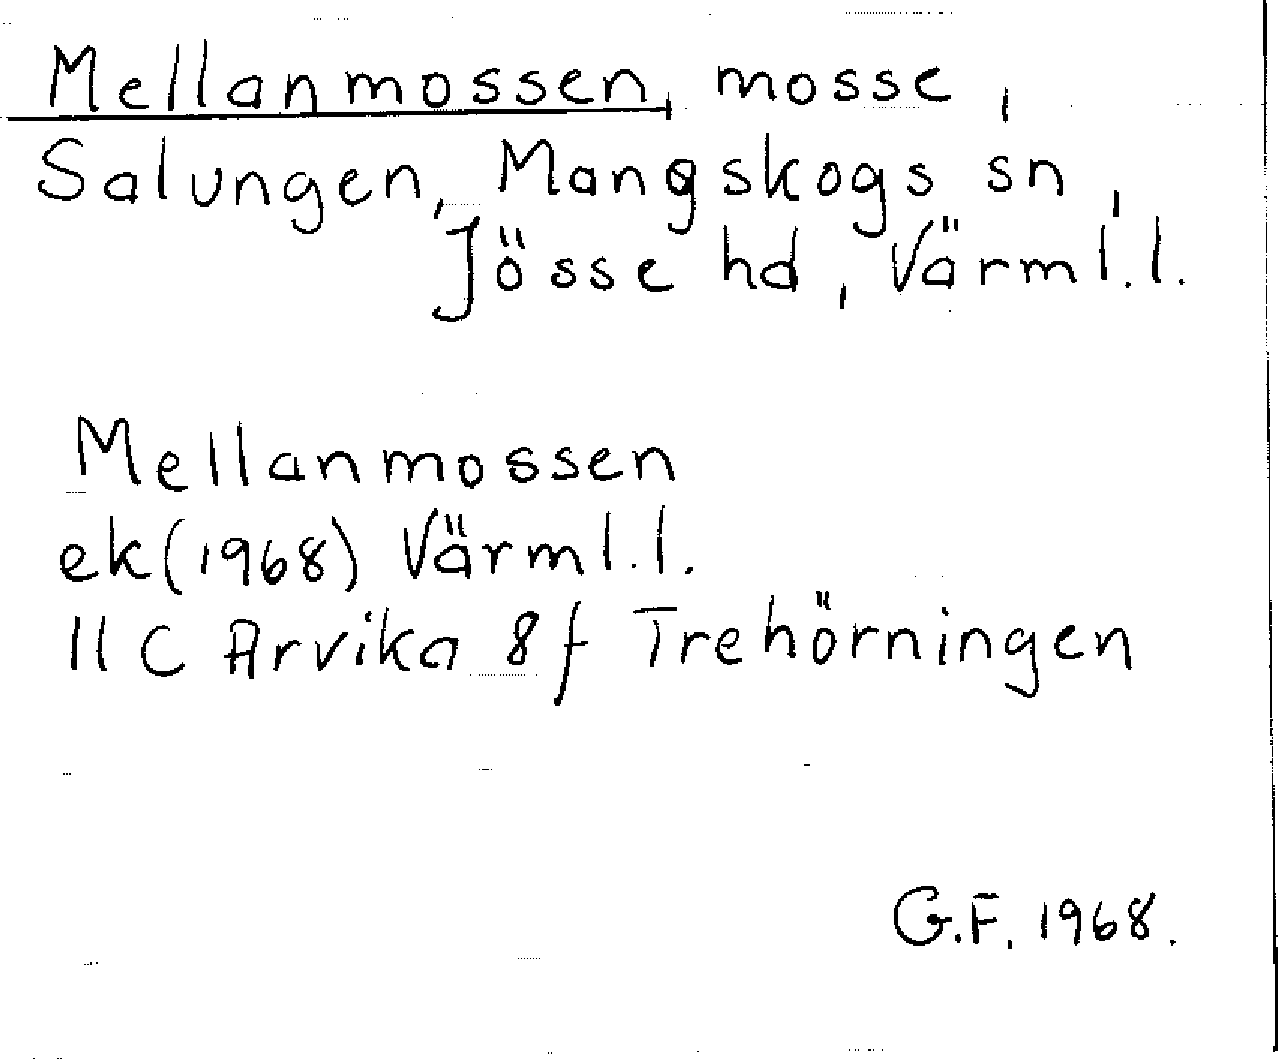 Mellanmossen, mosse,
Salungen, Mangskogs sn,
Jösse hd, Värml.l.
Mellanmossen
ek(1968) Värml.l.
11 C Arvika 8f Trehörningen
G.F. 1968.